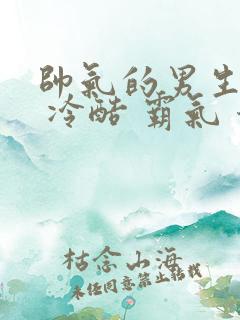 帥氣的男生
冷酷 霸氣
枯念山海
未经同意禁止转载